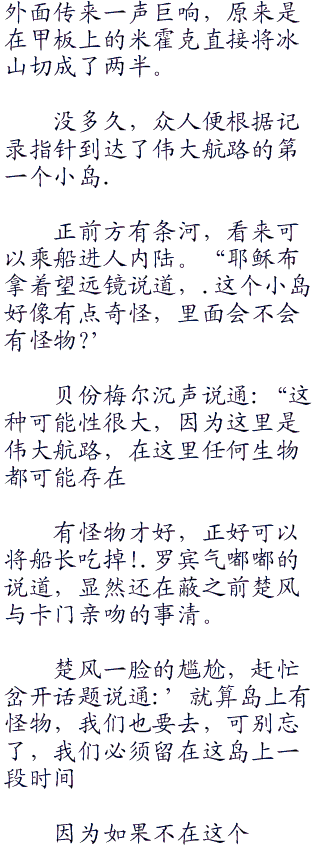 外面传来一声巨响，原来是
在甲板上的米霍克直接将冰
山切成了两半。
没多久，众人便根据记
录指针到达了伟大航路的第
一个小岛.
正前方有条河，看来可
以乘船进人内陆。“耶稣布
拿着望远镜说道，.这个小岛
好像有点奇怪，里面会不会
有怪物?’
贝份梅尔沉声说通:“这
种可能性很大，因为这里是
伟大航路，在这里任何生物
都可能存在
有怪物才好，正好可以
将船长吃掉!.罗宾气嘟嘟的
说道，显然还在蔽之前楚风
与卡门亲吻的事清。
楚风一脸的尴尬，赶忙
岔开话题说通:’就算岛上有
怪物，我们也要去，可别忘
了，我们必须留在这岛上一
段时间
因为如果不在这个